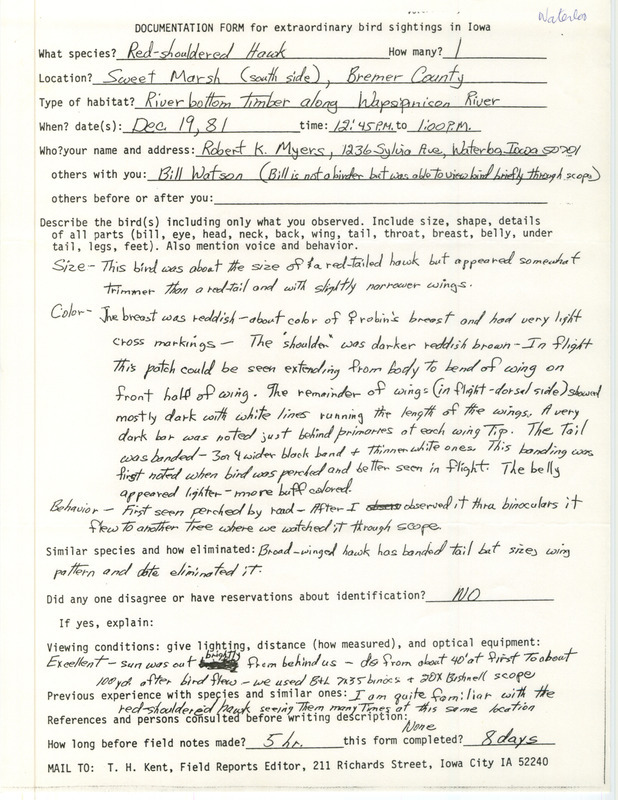 Waterloo
DOCUMENTATION FORM for extraordinary bird sightings in Iowa
What species? Red-shouldered Hawk How many? 1
Location? Sweet Marsh (south side), Bremer County
Type of habitat? River bottom timber along Wapsipinicon River
When? date(s): Dec. 19, 81 time: 12:45 P.M. to 1:00 P.M.
Who? your name and address: Robert K. Myers, 1236 Sylvia Ave, Waterloo, Iowa 50701
others with you: Bill Watson (Bill is not a birder but was able to view bird briefly through scope)
others before or after you:
Describe the bird(s) including only what you observed. Include size, shape, details
of all parts (bill, eye, head, neck, back, wing, tail, throat, breast, belly, under
tail, legs, feet). Also mention voice and behavior.
Size - This bird was about the size of a red-tailed hawk but appeared somewhat
trimmer than a red-tail and with slightly narrower wings.
Color - The breast was reddish - about color of ♀ robin's breast and had very light
cross markings - The "shoulder" was darker reddish brown - In flight
this patch could be seen extending from body to bend of wing on
front half of wing. The remainder of wings (in flight - dorsal side) showed
mostly dark with white lines running the length of the wings. A very
dark bar was noted just behind primaries at each wing Tip. The Tail
was banded - 3 or 4 wider black band + thinner white ones. This banding was
first noted when bird was perched and better seen in flight. The belly
appeared lighter - more buff colored.
Behavior - First seen perched by road - After I observed it thru binoculars it
flew to another tree where we watched it through scope.
Similar species and how eliminated: Broad-winged hawk has banded tail but size, wing
pattern and date eliminated it.
Did any one disagree or have reservations about identification? NO
If yes, explain:
Viewing conditions: give lighting, distance (how measured), and optical equipment:
Excellent - sun was out brightly from behind us - dis from about 40' at first To about
100 yds. after bird flew - we used B+L 7x35 binocs + 20X Bushnell scope
Previous experience with species and similar ones: I am quite familiar with the
red-shouldered hawk seeing Them many Times at this same location
References and persons consulted before writing description:
None
How long before field notes made? 5 hr. this form completed? 8 days
MAIL TO: T. H. Kent, Field Reports Editor, 211 Richards Street, Iowa City IA 52240